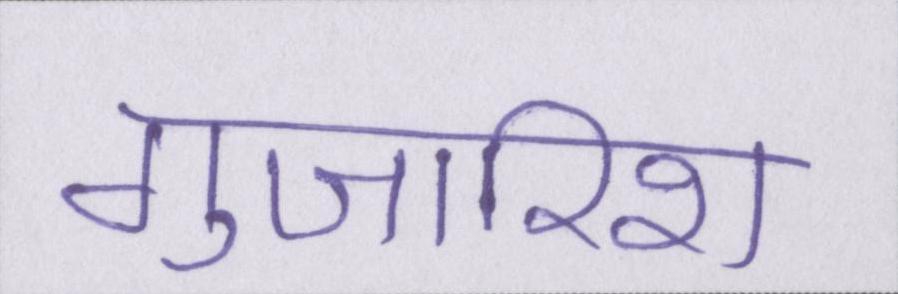 गुजारिश